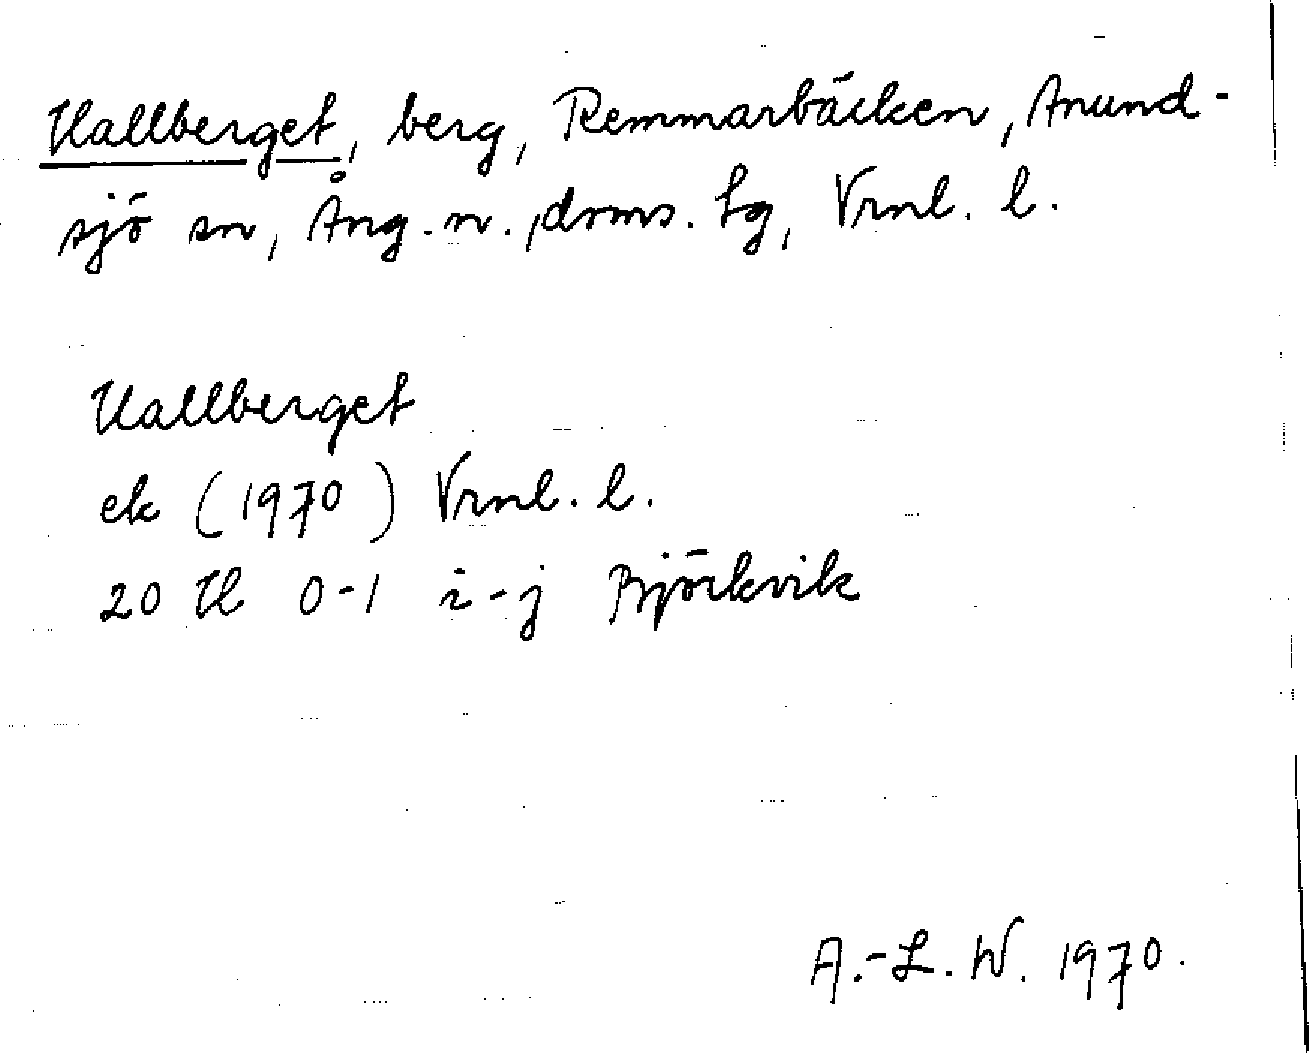 Hallberget, berg, Remmarbäcken, Anund-
sjö sn, Ång. n. doms. lg, Vrnl. l.
Hallberget
ek (1970) Vrnl. l.
20 H 0-1 i-j Björkvik
A.-L. W. 1970.